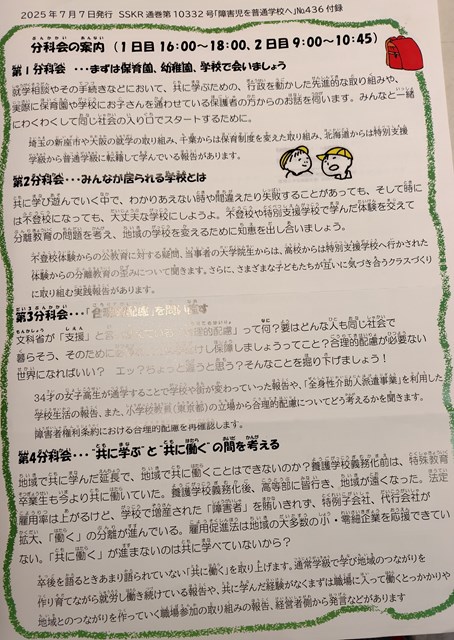 2025年7月7日発行　SSKR通巻第10332号「障害児を普通学校へ」No.436付録
分科会の案内　（1日目 16:00～18:00、2日目 9:00～10:45）
第1分科会・・・まずは保育園、幼稚園、学校で会いましょう
就学相談やその手続きなどにおいて、共に学ぶための、行政を動かした先進的な取り組みや、
実際に保育園や学校にお子さんを通わせている保護者の方からのお話を伺います。みんなと一緒
にわくわくして同じ社会の入り口でスタートするために。
埼玉の新座市や大阪の就学の取り組み、千葉からは保育制度を変えた取り組み、北海道からは特別支援
学級から普通学級に転籍して学んでいる報告があります。
第2分科会・・・みんなが居られる学校とは
共に学び遊んでいく中で、わかりあえない時や間違えたり失敗することがあっても、そして時に
は不登校になっても、大丈夫な学校にしようよ。不登校や特別支援学校で学んだ体験を交えて
分離教育の問題を考え、地域の学校を変えるために知恵を出し合いましょう。
不登校体験からの公教育に対する疑問、当事者の大学院生からは、高校からは特別支援学校へ行かされた
体験からの分離教育の歪みについて聞きます。さらに、さまざまな子どもたちが互いに気づき合うクラスづくり
に取り組む実践報告があります。
第3分科会・・・「合理的配慮」を問い直す
文科省が「支援」と言 理的配慮」って何？要はどんな人も同じ社会で
暮らそう、そのために し保障しましょうってこと？合理的配慮が必要ない
世界になればいい？　エッ？ちょっと違うと思う？そんなことを掘り下げましょう！
34才の女子高生が通学することで学校や街が変わっていった報告や、「全身性介助人派遣事業」を利用した
学校生活の報告、また、小学校教員（東京都）の立場から合理的配慮についてどう考えるかを聞きます。
障害者権利条約における合理的配慮を再確認します。
第4分科会・・・“共に学ぶ”と“共に働く”の間を考える
地域で共に学んだ延長で、地域で共に働くことはできないのか？養護学校義務化前は、特殊教育
卒業生も今より共に働いていた。養護学校義務化後、高等部に器行き、地域が遠くなった。法定
雇用率は上がるけど、学校で増産された「障害者」を賄いきれず、特例子会社、代行会社が
拡大、「働く」の分離が進んでいる。雇用促進法は地域の大多数の小・零細企業を応援できてい
ない。「共に働く」が進まないのは共に学べていないから？
卒後を語るときあまり語られていない「共に働く」を取り上げます。通常学級で学び地域のつながりを
作り育てながら就労し働き続けている報告や、共に学んだ経験がなくまずは職場に入って働くとっかかりや
地域とのつながりを作っていく職場参加の取り組みの報告、経営者側から発言などがあります